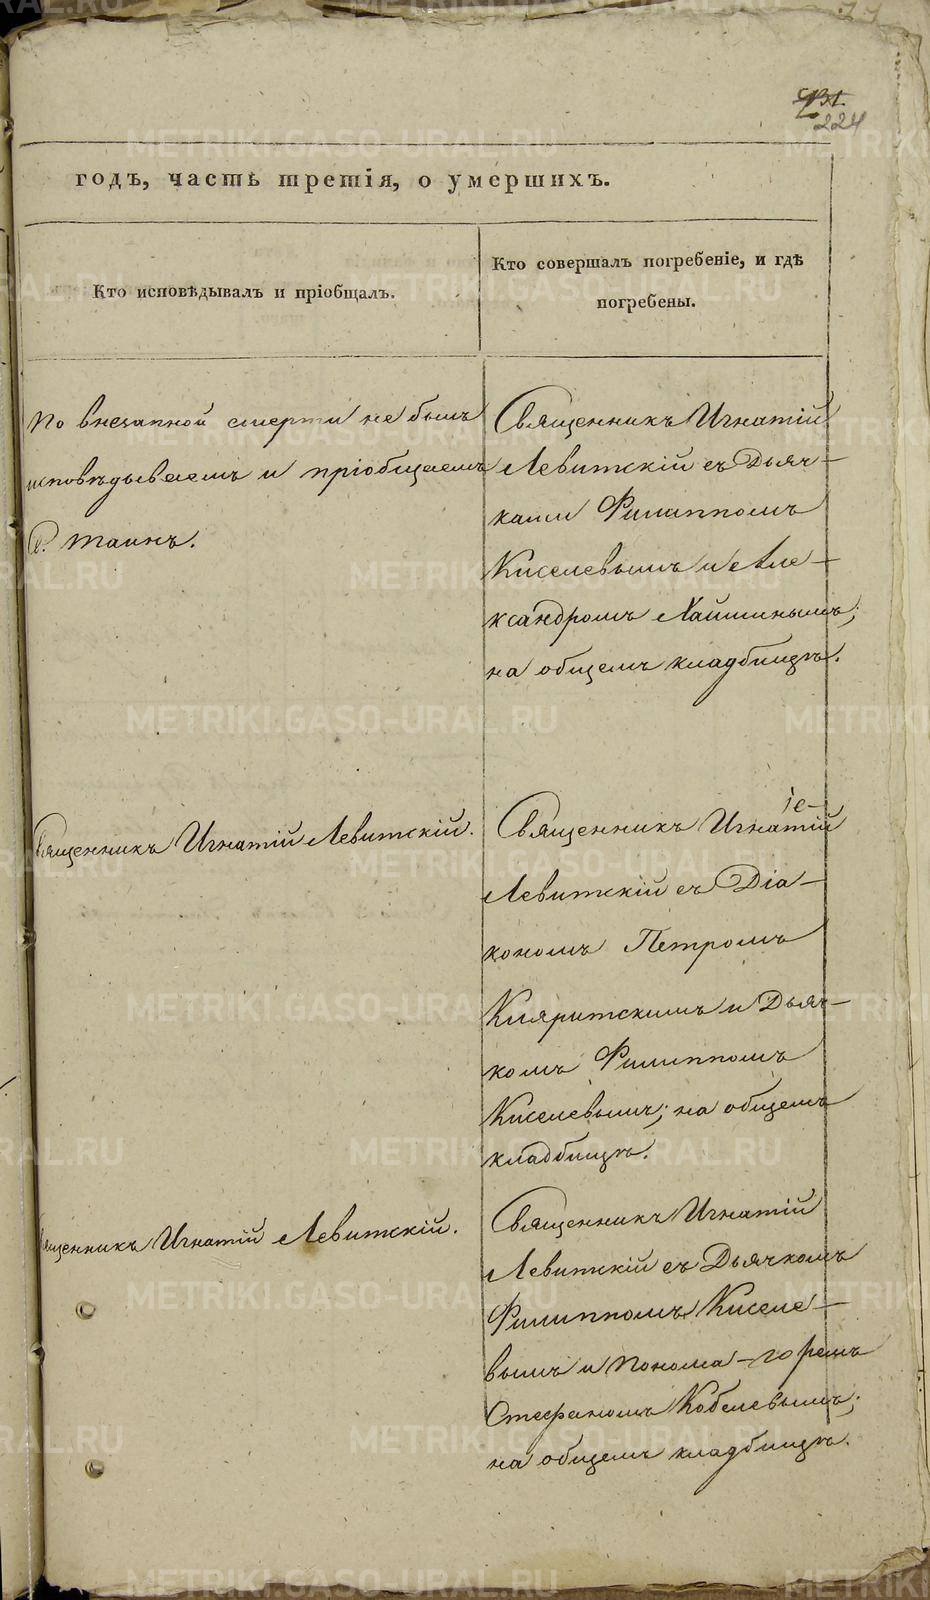 224
годъ, часть третія, о умершихъ.
Кто исповѣдывалъ и пріобщалъ.
Кто совершалъ погребеніе, и гдѣ
погребены.
По внезапной смерти не былъ
исповѣдываемъ и пріобщаемъ
С. Таинъ.
Священникъ Игнатій
Левитскій съ Дьяч-
ками Филиппомъ
Киселевымъ и Але-
ксандромъ
на общемъ кладбищѣ.
Священникъ Игнатій Левитскій.
Священникъ Игнатій
Левитскій съ Діа-
кономъ Петромъ
и Дьяч-
комъ Филиппомъ
Киселевымъ; на общемъ
кладбищѣ.
Священникъ Игнатій Левитскій.
Священникъ Игнатій
Левитскій съ Дьячкомъ
Филиппомъ Киселе-
вымъ и Понома-
Стефаномъ Кобелевымъ;
на общемъ кладбищѣ.
METRIKI.GASO-URAL.RU